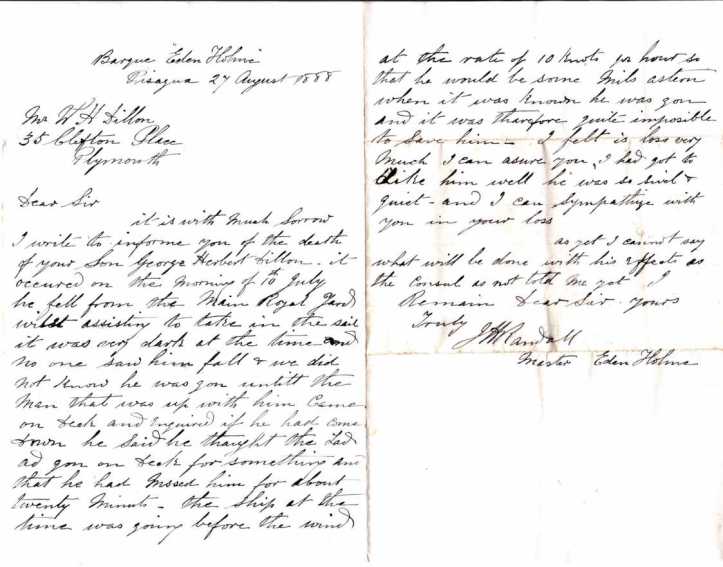 Barque Eden Holme
Pisagua 27 August 1888
Mr W H Dillon
35 Clifton Place
Plymouth
Dear Sir
it is with Much Sorrow
I write to informe you of the death
of your Son George Herbert Dillon. it
occured on the Morning of 10th July
he fell from the Main Royal Yard
wilst assisting to take in the sail
it was very dark at the time and
no one saw him fall & we did
not know he was gon untill the
Man that was up with him Came
on Deck and Inquired if he had come
down he Said he thaught the Lad
ad gon on Deck for something and
that he had Missed him for about
twenty Minuts - the Ship at the
time was going before the wind
at the rate of 10 Knots pr hour so
that he would be some Mils astern
when it was Known he was gon
and it was therefore quite imposible
to Save him - I felt is loss very
Much I can asure you, I had got to
like him well he was so sivil &
quiet - and I can Sympathize with
you in your loss
as yet I cannot say
what will be done with his effects as
the Consul as not told Me yet I
Remain Dear Sir yours
Truly
J H Randall
Master Eden Holme